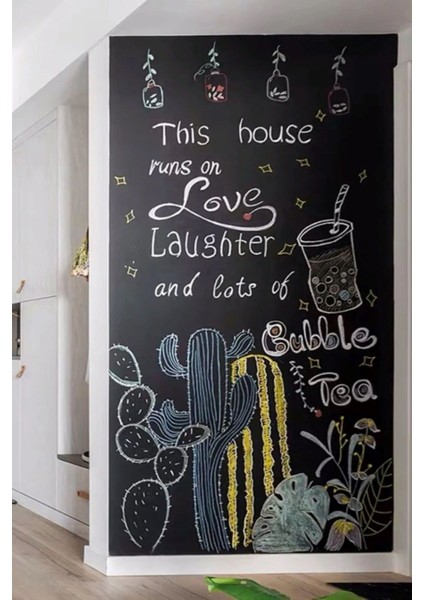 This house
runs on
Love
Laughter
and lots of
Bubble
Tea